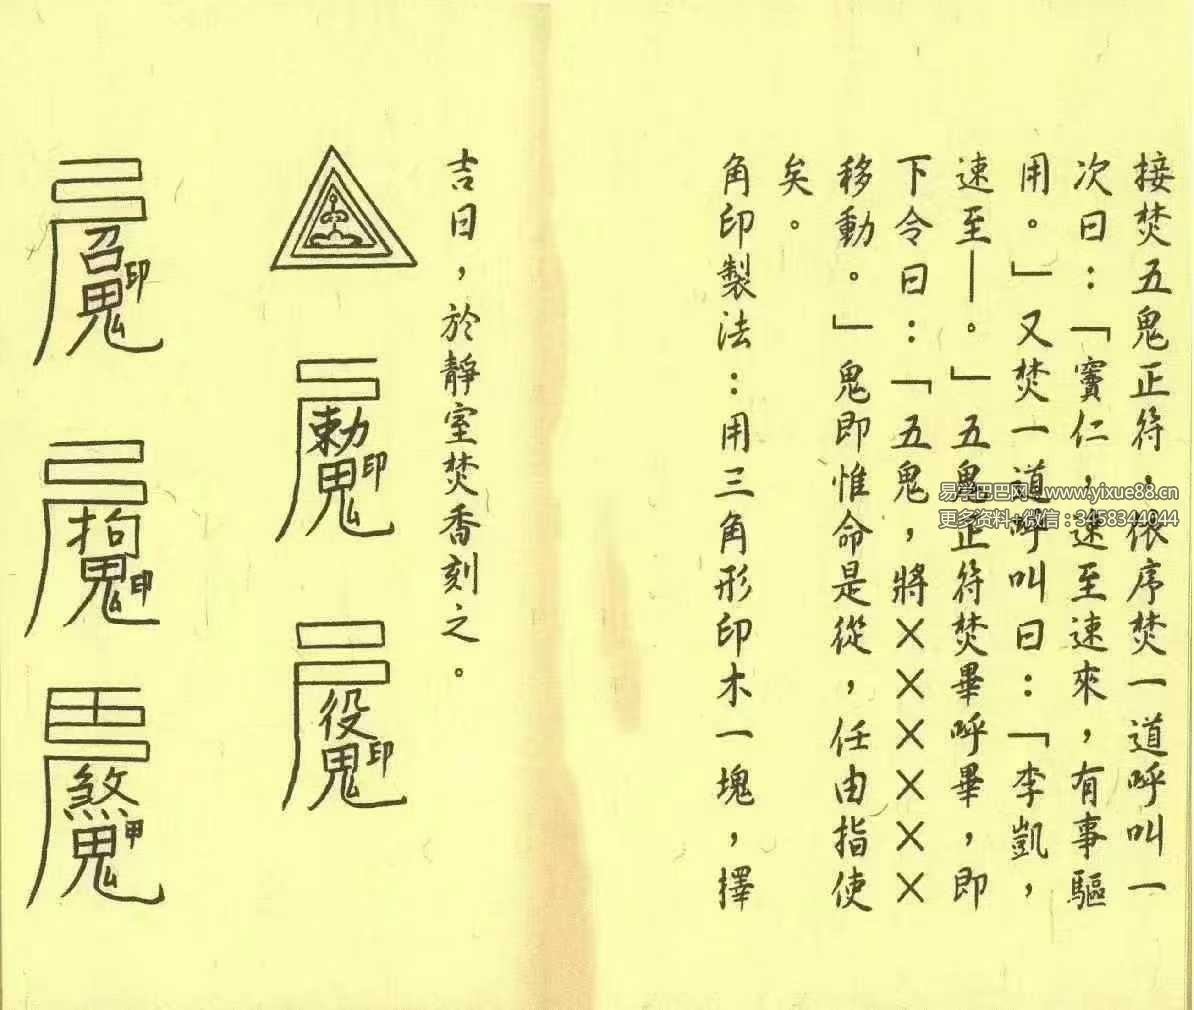 接焚五鬼正符，依序焚一道呼叫一
次曰：「竇仁，速至速來，有事驅
用。」又焚一道呼叫曰：「李凱，
速至—。」五鬼正符焚畢呼畢，即
下令曰：「五鬼，將××××××
移動。」鬼即惟命是從，任由指使
矣。
角印製法：用三角形印木一塊，擇
吉日，於靜室焚香刻之。
勅鬼印
役鬼印
召鬼印
拘鬼印
煞鬼甲
易学巴巴网：www.yixue88.cn
更多资料+微信：3458344044